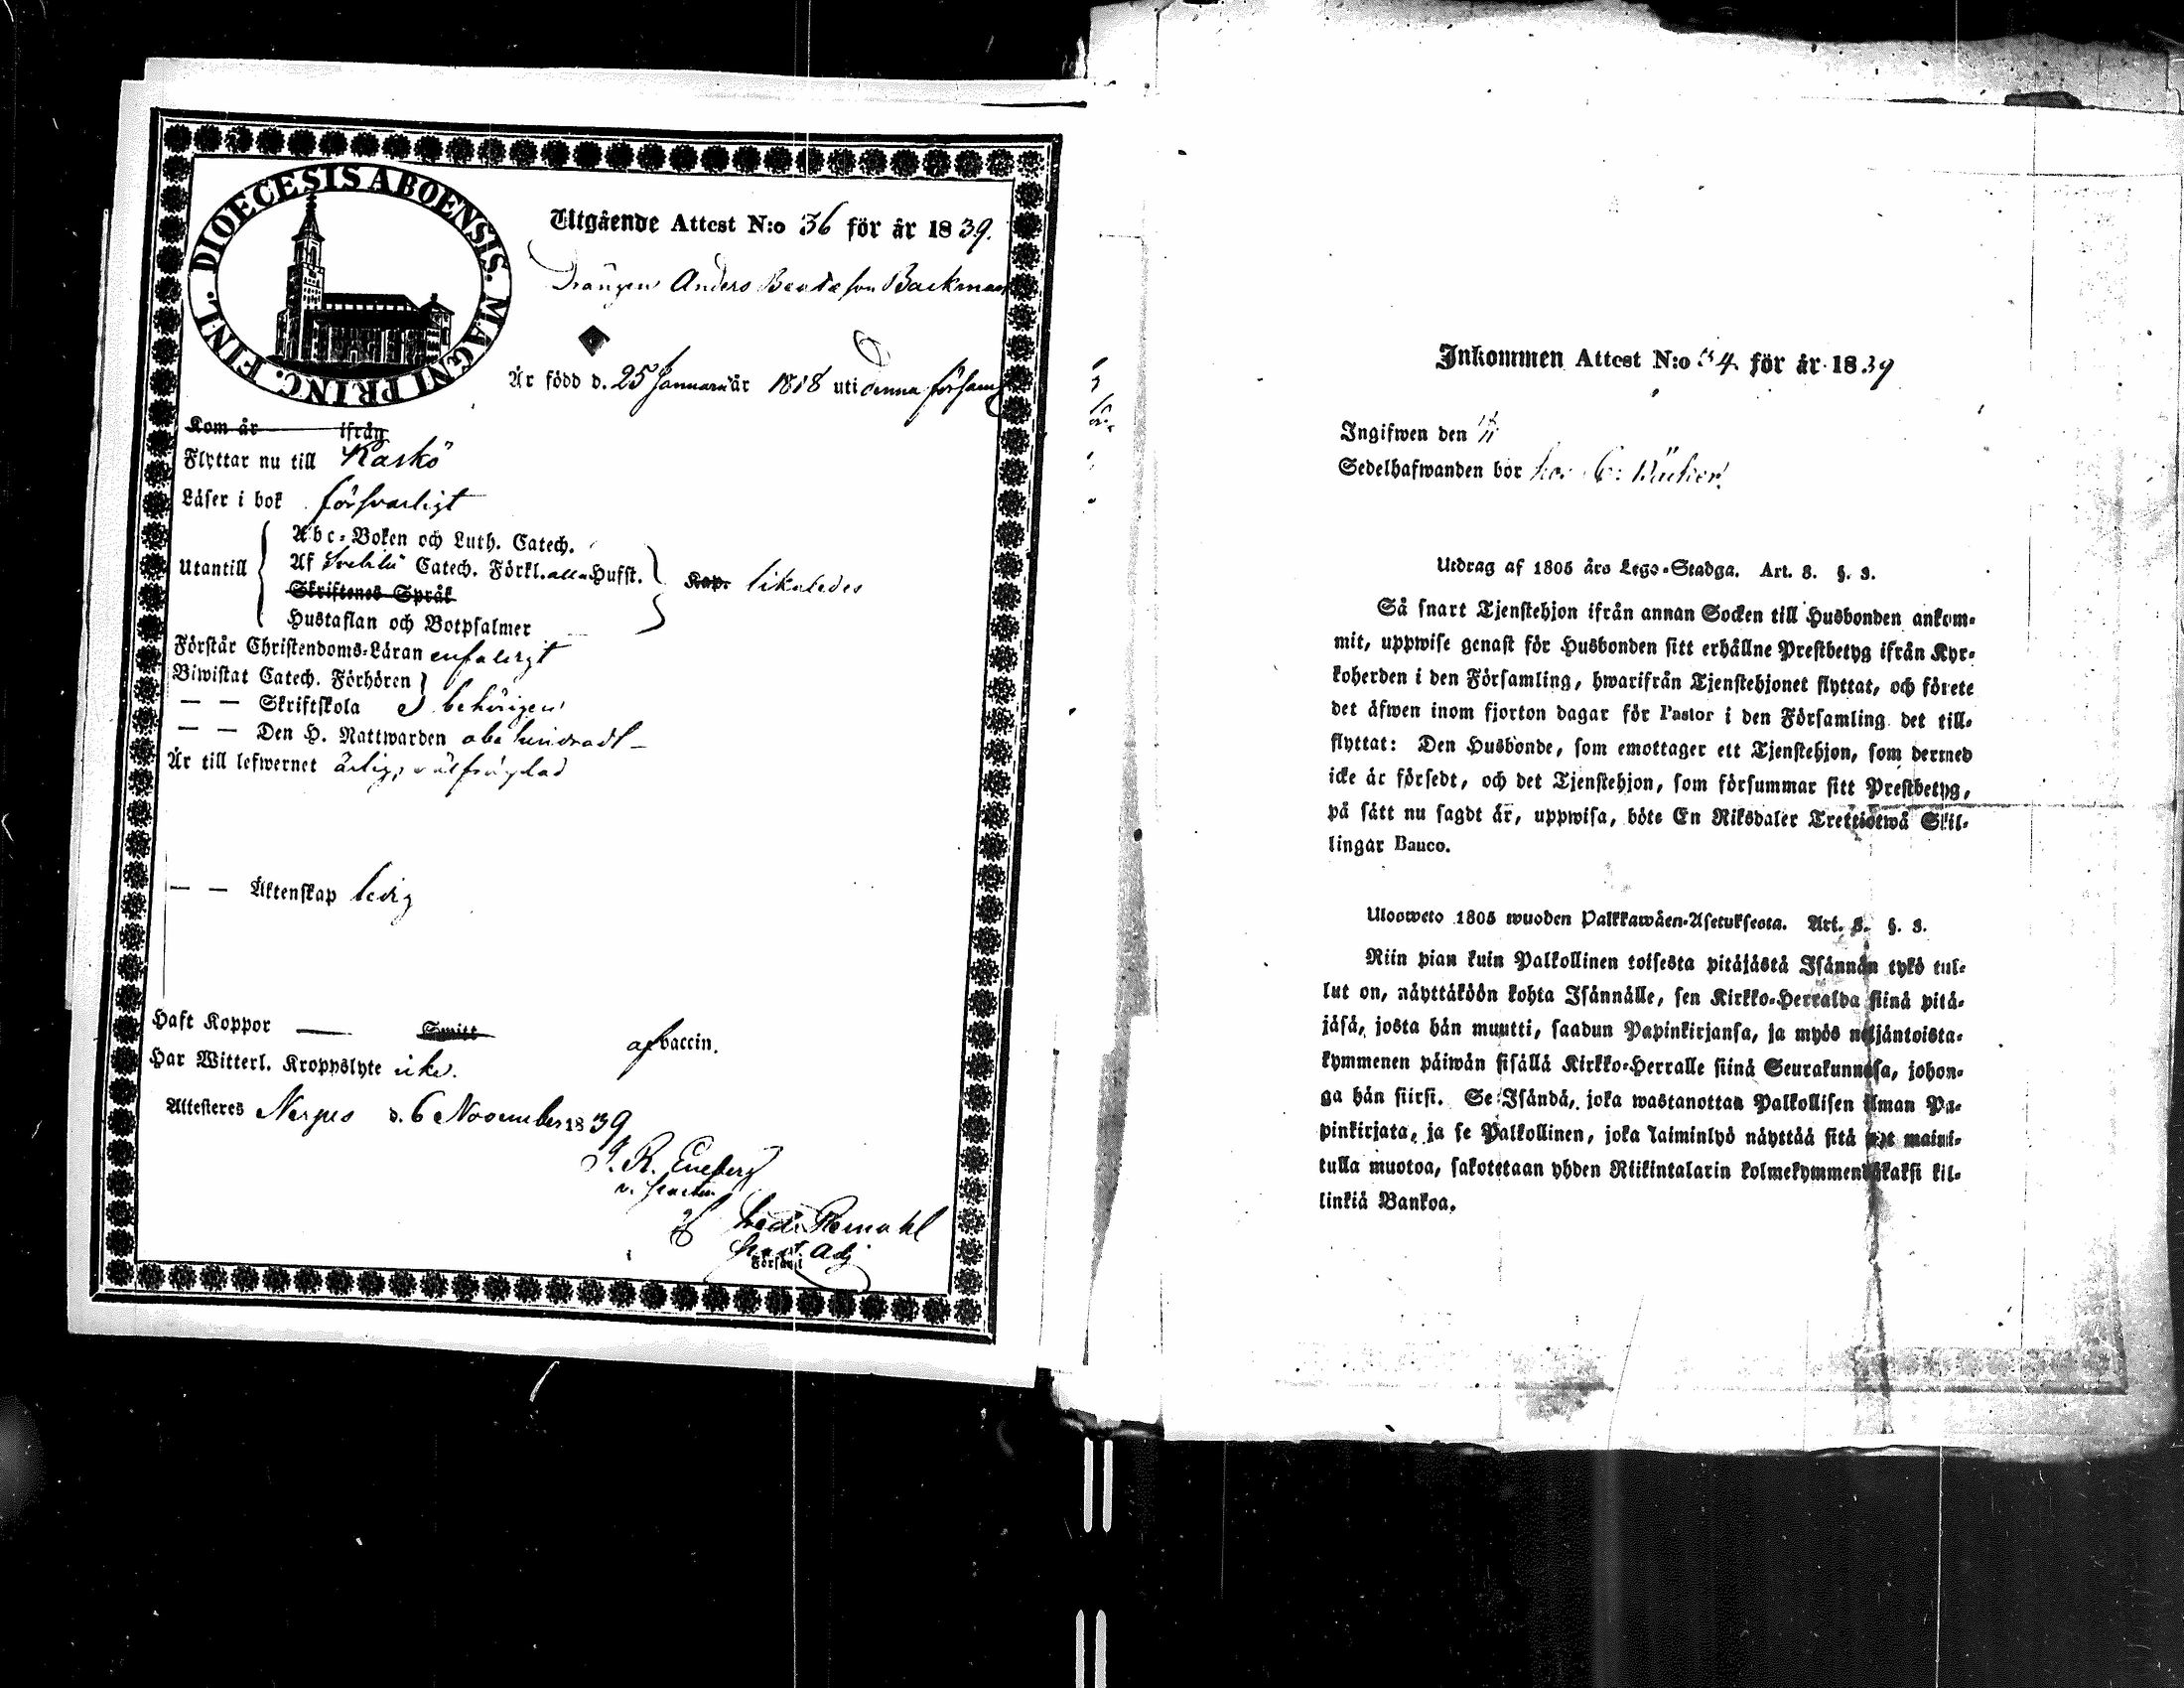 DIOECESIS ABOENSIS. MAGNI PRINC. FINL.
Utgående Attest N:o 36 för år 1839.
Drängen Anders Beata son Backman
Är född d. 25 Januarii år 1818 uti denna församl
Kom år ifrån
Flyttar nu till Kaskö
Läser i bok försvarligt
Abc-Boken och Luth. Catech.
Utantill Af Svebilii Catech. Förkl. alla Hufst. Kap. likaledes
Skriftenes Språk
Hustaflan och Botpsalmer
Förstår Christendoms-Läran enfaldigt
Biwistat Catech. Förhören
— — Skriftskola behörigen
— — Den H. Nattwarden obehindradt
Är till lefwernet ärlig, välfrägdad
— — Äktenskap ledig
Haft Koppor — Smitt af vaccin.
Har Witterl. Kroppslyte icke.
Attesteres Nerpes d. 6 November 1839
J. R. Eneberg
v. Pastor
Past. Adj
i Församl
Inkommen Attest N:o 34 för år 1839
Ingifwen den
Sedelhafwanden bor hos
Utdrag af 1805 års Lego-Stadga. Art. 3. §. 3.
Så snart Tjenstehjon ifrån annan Socken till Husbonden ankom-
mit, uppwise genast för Husbonden sitt erhållne Prestbetyg ifrån Kyr-
koherden i den Församling, hwarifrån Tjenstehjonet flyttat, och förete
det äfwen inom fjorton dagar för Pastor i den Församling det till-
flyttat: Den Husbonde, som emottager ett Tjenstehjon, som dermed
icke är försedt, och det Tjenstehjon, som försummar sitt Prestbetyg,
på sätt nu sagdt är, uppwisa, böte En Riksdaler Trettiotwå Skil-
lingar Banco.
Ulosweto 1805 wuoden Palkkawäen-Asetuksesta. Art. 3. §. 3.
Niin pian kuin Palkollinen toisesta pitäjästä Isännän tykö tul-
lut on, näyttäköön kohta Isännälle, sen Kirkko-Herralda siinä pitä-
jäsä, josta hän muutti, saadun Papinkirjansa, ja myös neljäntoista-
kymmenen päiwän sisällä Kirkko-Herralle siinä Seurakunnasa, johon-
ga hän siirsi. Se Isändä, joka wastanottaa Palkollisen ilman Pa-
pinkirjata, ja se Palkollinen, joka laiminlyö näyttää sitä nyt maini-
tulla muotoa, sakotetaan yhden Riikintalarin kolmekymmentäkaksi kil-
linkiä Bankoa.